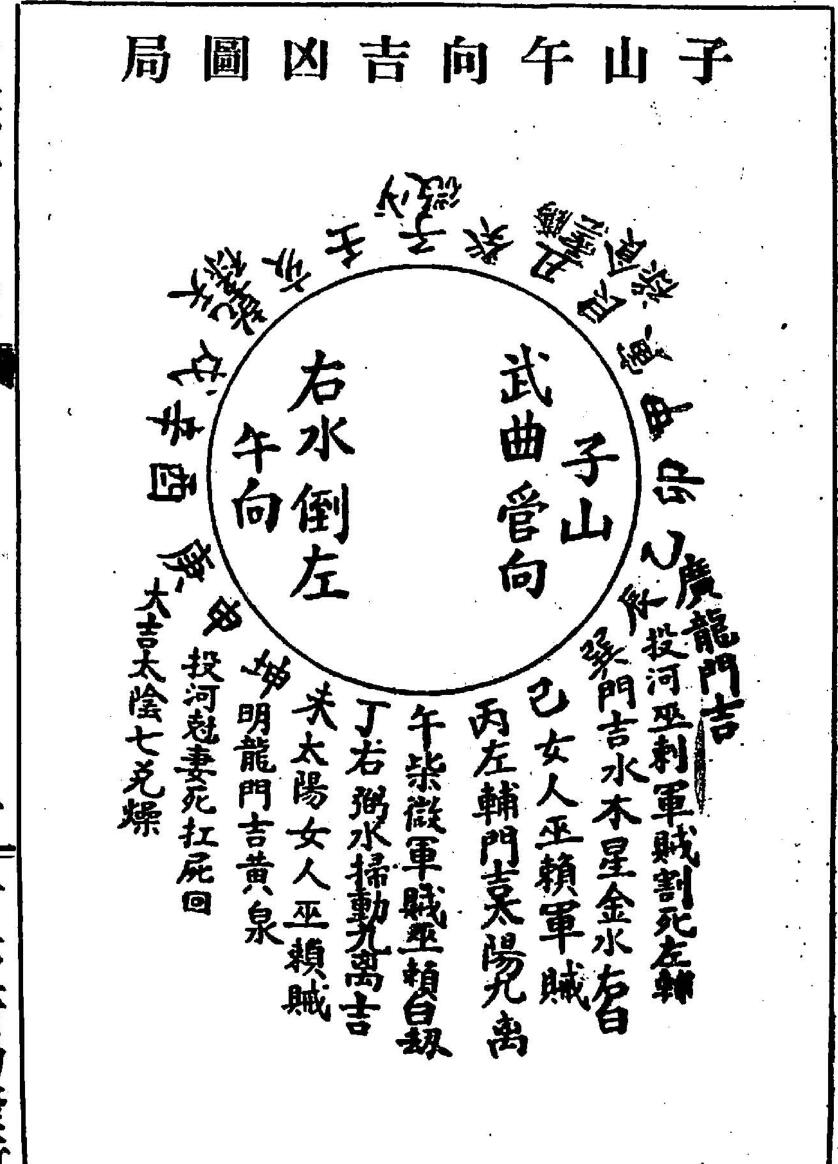 子山午向吉凶圖局
子
癸
丑
艮
寅
甲
卯
乙
辰
廣龍門吉
投河巫剌軍賊割死左輔
巽門吉水木星金水右白
己女人巫賴軍賊
丙左輔門吉太陽九离
午柴微軍賊巫賴白刼
丁右弼水掃動九离吉
未太陽女人巫賴賊
坤明龍門吉黄泉
申投河尅妻死扛屍回
庚大吉太陰七兑燥
酉
辛
戌
乾
亥
壬
子山
武曲管向
右水倒左
午向